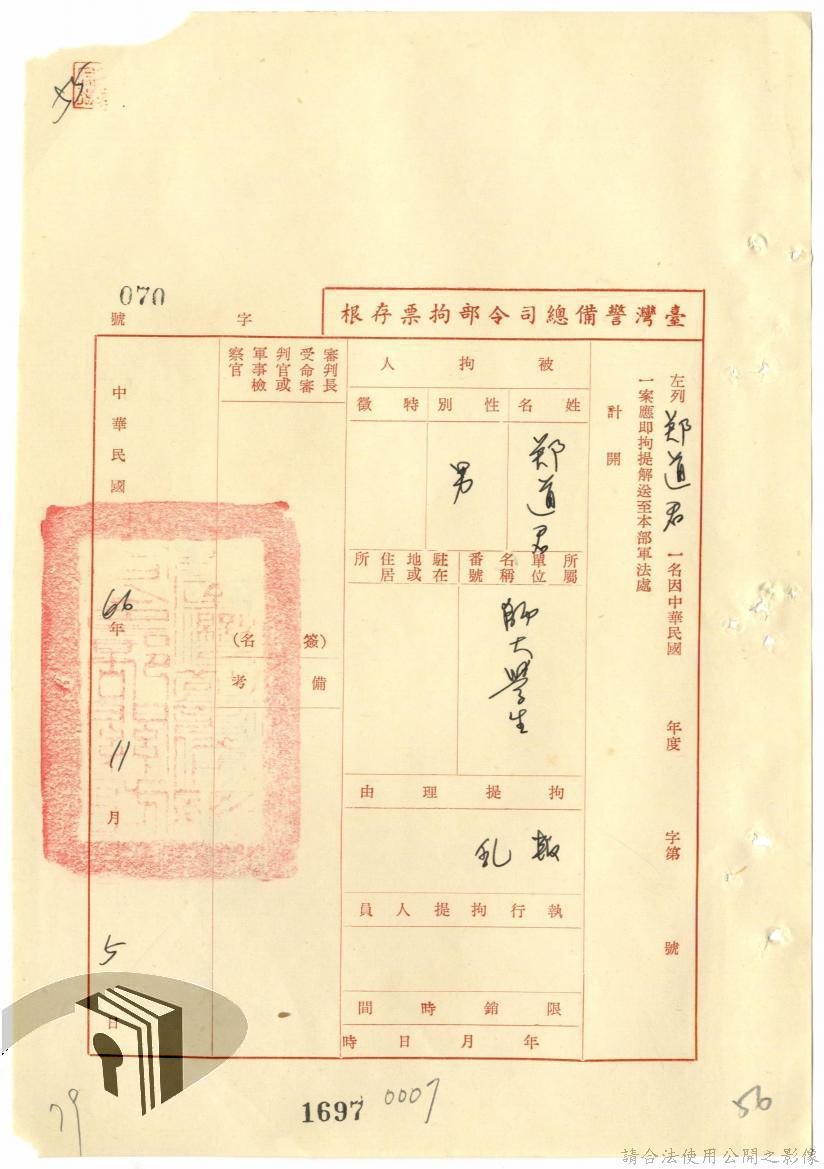 070
臺灣警備總司令部拘票存根
字
號
左列鄭道君一名因中華民國 年度 字第 號
一案應即拘提解送至本部軍法處
計開
被拘人
姓名
性別
特徵
鄭道君
男
所屬單位名稱番號
駐在地或住居所
師大學生
拘提理由
叛乱
執行拘提人員
限銷時間
年 月 日 時
審判長
受命審
判官或
軍事檢
察官
(簽名)
備考
中華民國66年11月5日
79
1697
0007
56
請合法使用公開之影像